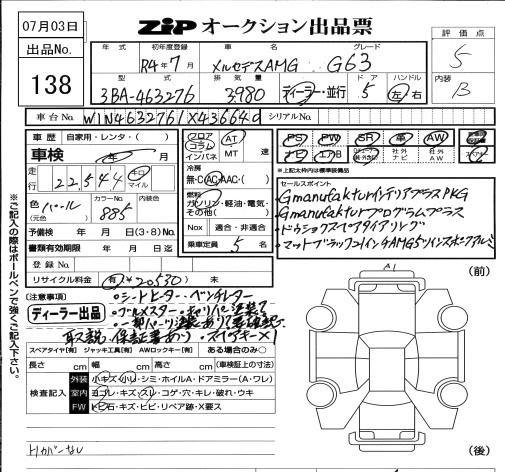 07月03日
ZIP オークション出品票
出品No.
138
年式 初年度登録 車名 グレード
R4年7月 メルセデスAMG G63
型式 排気量 ドア ハンドル
3BA-463276 3980 ディーラー・並行 5 左右
評価点
5
内装
B
車台No. W1N4632761X43664 シリアルNo.
車歴 自家用・レンタ・( )
車検 年 月
走行 22,544 キロ マイル
色 パール (元色) カラーNo. 885 内装色
予備検 年 月(3・8)の月
書類有効期限 年 月 日
登録No.
リサイクル料金 有 ¥20530 未
フロア コラム インパネ AT MT 速
冷房 無・C・AC・AAC・( )
燃料 ガソリン・軽油・電気・その他( )
Nox 適合・非適合
乗車定員 5 名
PS PW SR 革 AW
ナビ エアB 社外ナビ 社外AW
※上記太枠内は機能保証
セールスポイント
・Gmanufakturインテリアプラス PKG
・Gmanufakturプログラムプラス
・ドゥシュクスペアタイアリング
・マットブラック21インチAMG5ツインスポークアルミ
(注意事項)
ディーラー出品
・シートヒーター・ベンチレーター
取説・保証書あり スペアキー×1
スペアタイヤ[有] ジャッキ工具[有] AWロックキー[有] ある場合のみ○
長さ cm 幅 cm 高さ cm (車検証上の寸法)
検査記入
外装 小キズ・小凹・シミ・ホイルA・ドアミラー(A・ワレ)
室内 ヨゴレ・キズ・スレ・コゲ・穴・キレ・破れ・ウキ
FW トビ石・キズ・ヒビ・リペア跡・X要ス
トノカバーなし
A1
(前)
(後)
※ご記入の際はボールペンで強くご記入下さい。